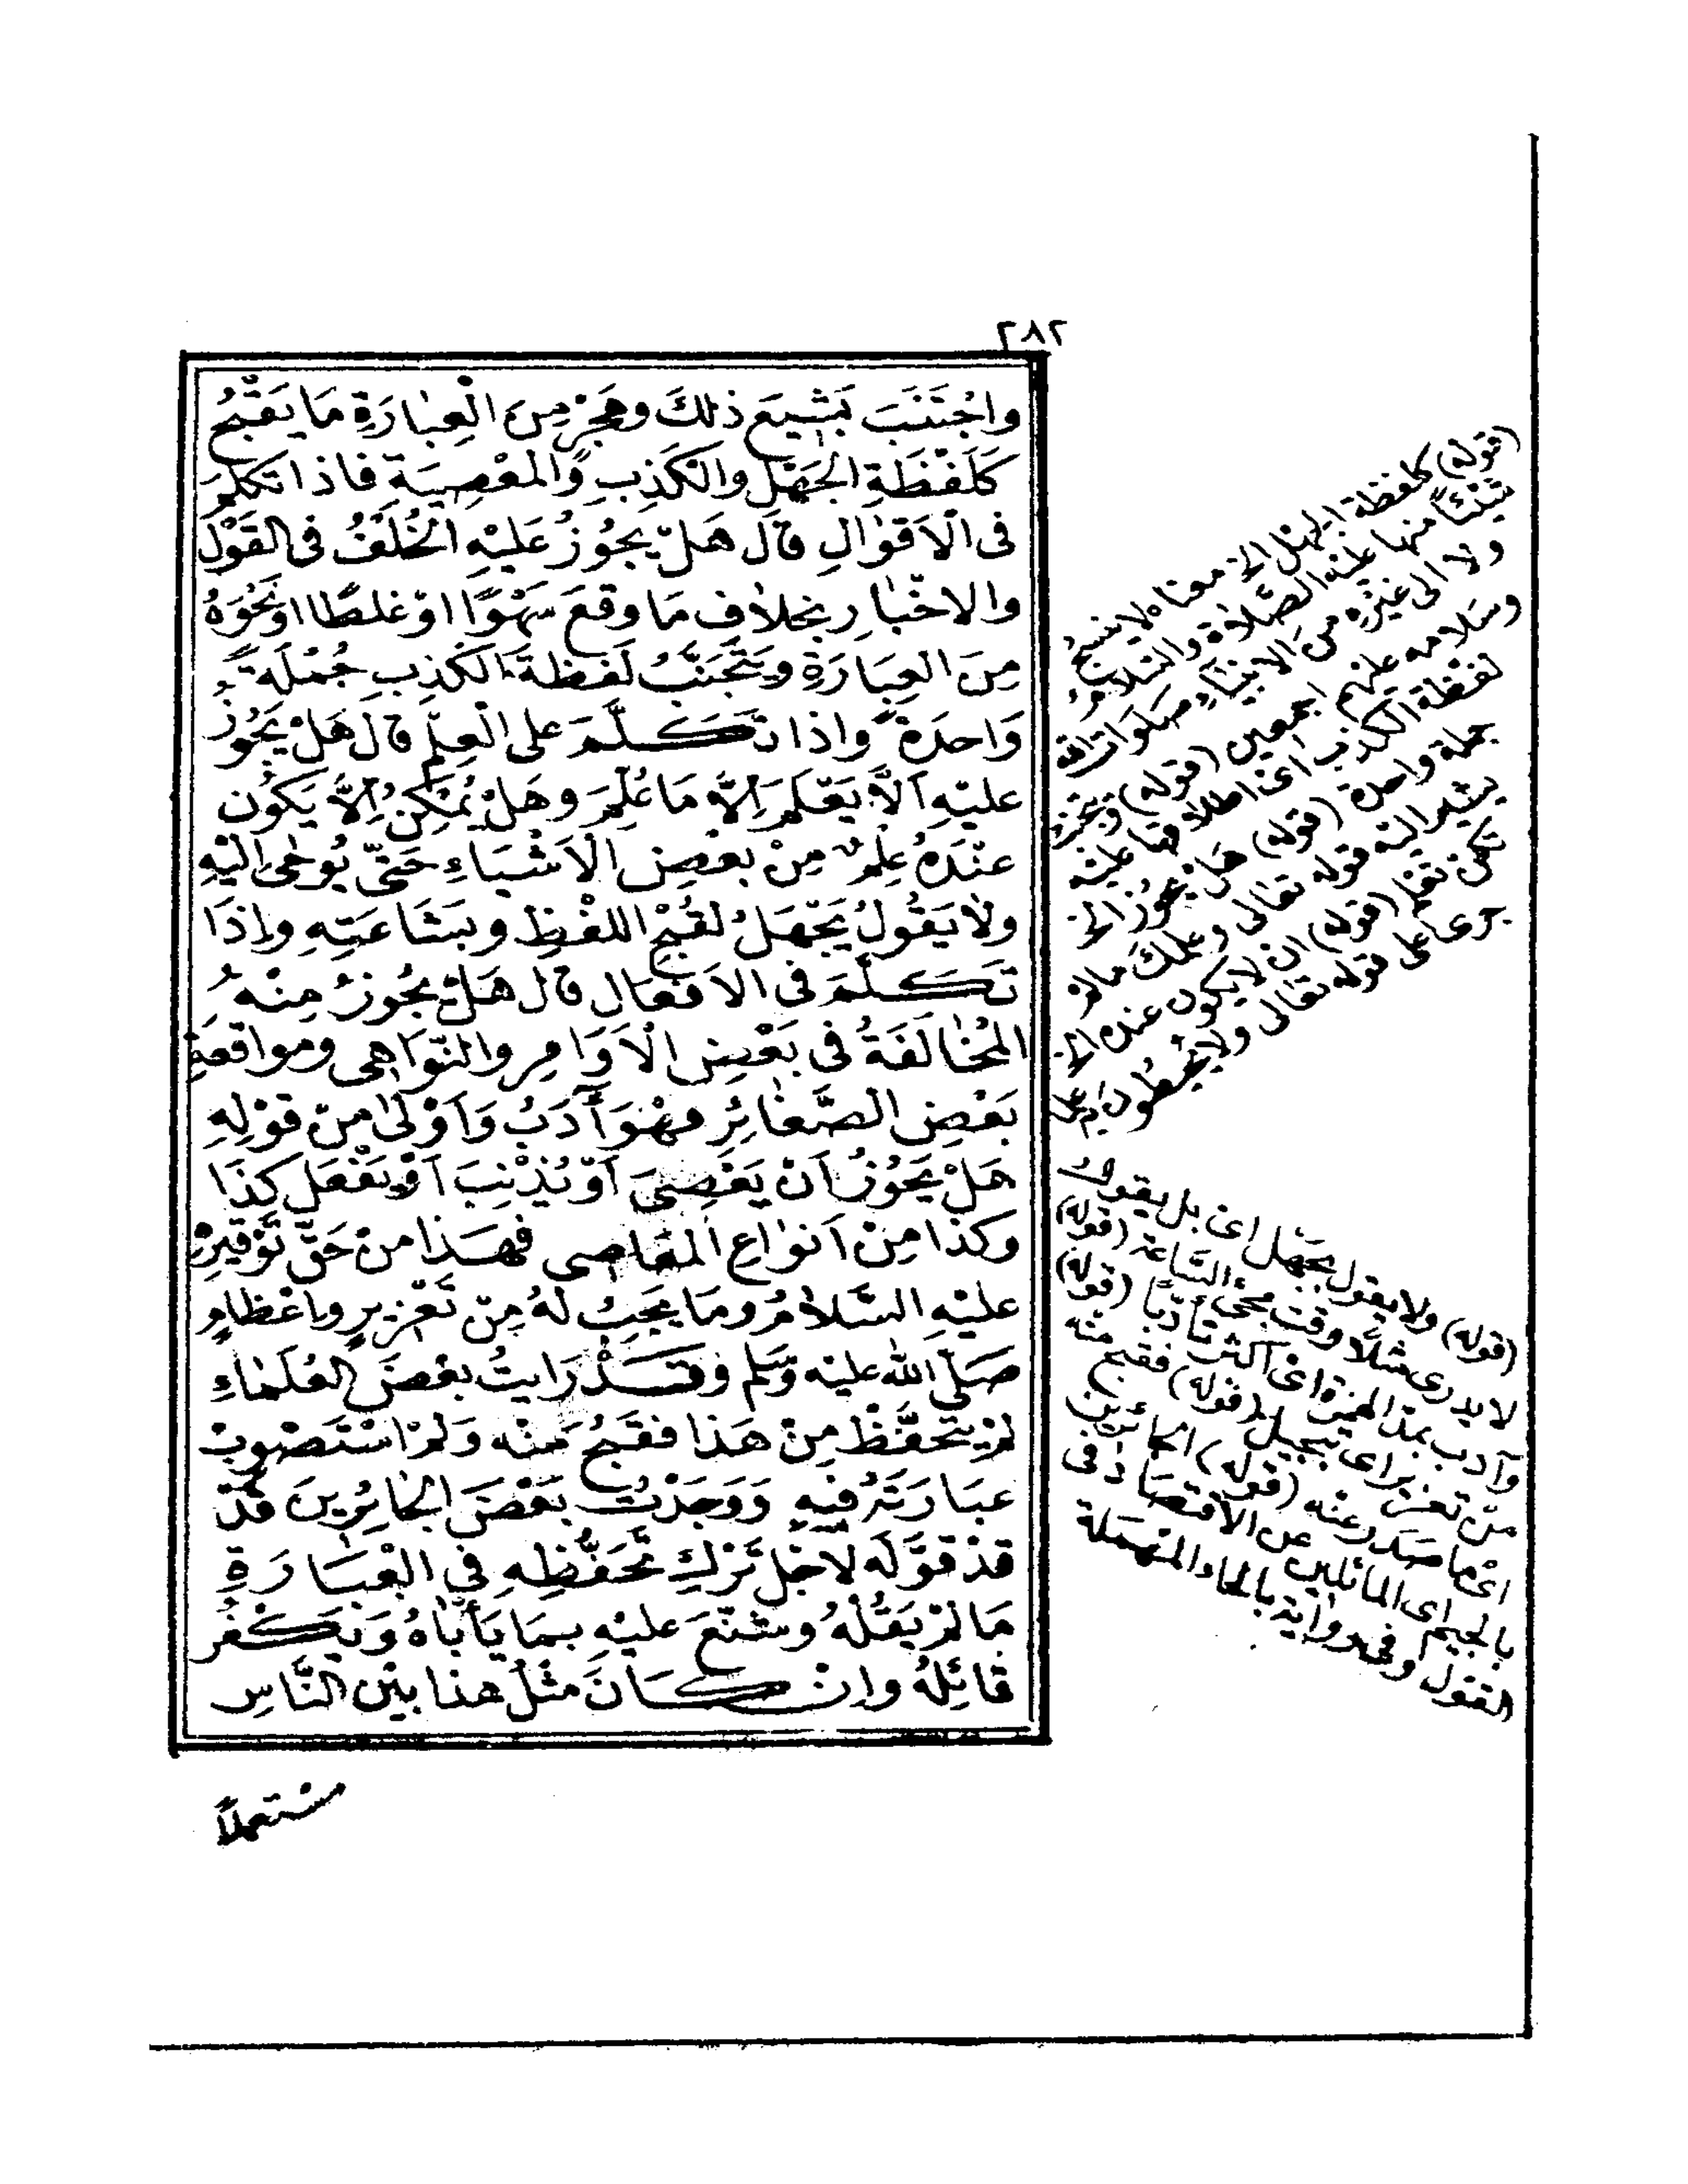 ٢٨٢
واجْتَنَبَ بَشِيعَ ذلكَ وهَجَرَ مِنَ الْعِبَارَةِ مَا يَقْبُحُ
كَلَفْظَةِ الجَهْلِ والْكَذِبِ وَالمَعْصِيَةِ فاذا تكلمَ
فى الْاَقْوَالِ قالَ هَلْ يَجُوزُ عَلَيْهِ الْخُلْفُ فى القَوْلِ
والاخْبَارِ بخلافِ مَا وقعَ سَهْوًا اوْ غلطًا اوْنَحْوَهُ
مِنَ العِبَارَةِ وَيَتَجَنَّبُ لَفظَةَ الكَذِبِ جُمْلَةً
وَاحدَةً واذا تَكَلَّمَ على الْعِلْمِ قال هَلْ يَجُوزُ
عليْهِ اَلَّا يَعْلَمَ اِلَّا مَا عُلِّمَ وهَلْ يُمْكِنُ اَلَّا يَكُونَ
عنْدَهُ عِلْمٌ مِنْ بعضِ الْاَشْيَاءِ حَتَّى يُوحٰى اليْهِ
ولا يَقُولُ يَجْهَلُ لقُبْحِ اللفْظِ وبَشَاعَتِهِ واِذَا
تَكَلَّمَ فى الافعَالِ قال هَلْ يَجُوزُ مِنْهُ
المُخَالَفَةُ فى بَعْضِ الْاَوَامِرِ والنَّوَاهِى ومواقعَةِ
بَعْضِ الصَّغَائِرِ فهْوَ آدَبُ وَاَوْلىٰ مِنْ قوْلِهِ
هَلْ يَجُوزُ اَنْ يَعْصِىَ اَوْ يُذْنِبَ اَوْ يَفْعَلَ كذَا
وكذَا مِنْ اَنوَاعِ المَعَاصِى فهَذَا منْ حَقِّ تَوْقيرِهِ
عليْهِ السَّلامُ ومَا يَجِبُ لَهُ مِنْ تَعْزِيرٍ واِعْظَامٍ
صَلَّى اللهُ عليْه وَسَلم وقَدْ رَايتُ بعْضَ العُلَمَاءِ
لمْ يتحَفَّظْ مِنْ هَذا فقَبُحَ مِنْه وَلمْ اَسْتَصْوِبْ
عبَارَتَهُ فيهِ وَوَجَدْتُ بَعْضَ الجَائِرِينَ قَدْ
قَدْ قوَّلَه لاجْلِ تَرْكِ تَحَفُّظِهِ فى العِبَارَةِ
مَا لمْ يَقُلْهُ وشَنَّعَ عليْهِ بمَا يَأبَاهُ وَيَكْفُرُ
قائِلُهُ واِنْ كَانَ مثْلُ هذا بيْنَ النَّاسِ
مستعملًا
(قوله) كلفظة الجهل الخ معناه لا ينسبُ
شيئًا منها عليْه الصَّلاة والسلامُ
ولا الى غيْره من الانبياء صلوات الله
وسلامه عليْهم اجمعين (قوله)
لفظة الكذب اى اطلاقها عليْه
جملة واحدة (قوله) هل يجوز الخ
يشير اليْه قوله تعالى وعلمك ما لم
تكن تعلم (قوله) ان لا يكون عنده الخ
على قوله تعالى ولا يحيطون
(قوله) ولا يقول يجْهل اى بل يقول
لا يدرى مثلًا وقت مجئ السَّاعة (قوله)
وآدب بمد الهمزة اى اكثر تأدبًا (قوله)
منْ تعزير اى تبجيل (قوله) فقبح منْه
اى ما صَدر عنْه (قوله) الجائرين
بالجيم اى المائلين عن الاقتصاد فى
القول وفى رواية بالحاء المهملة